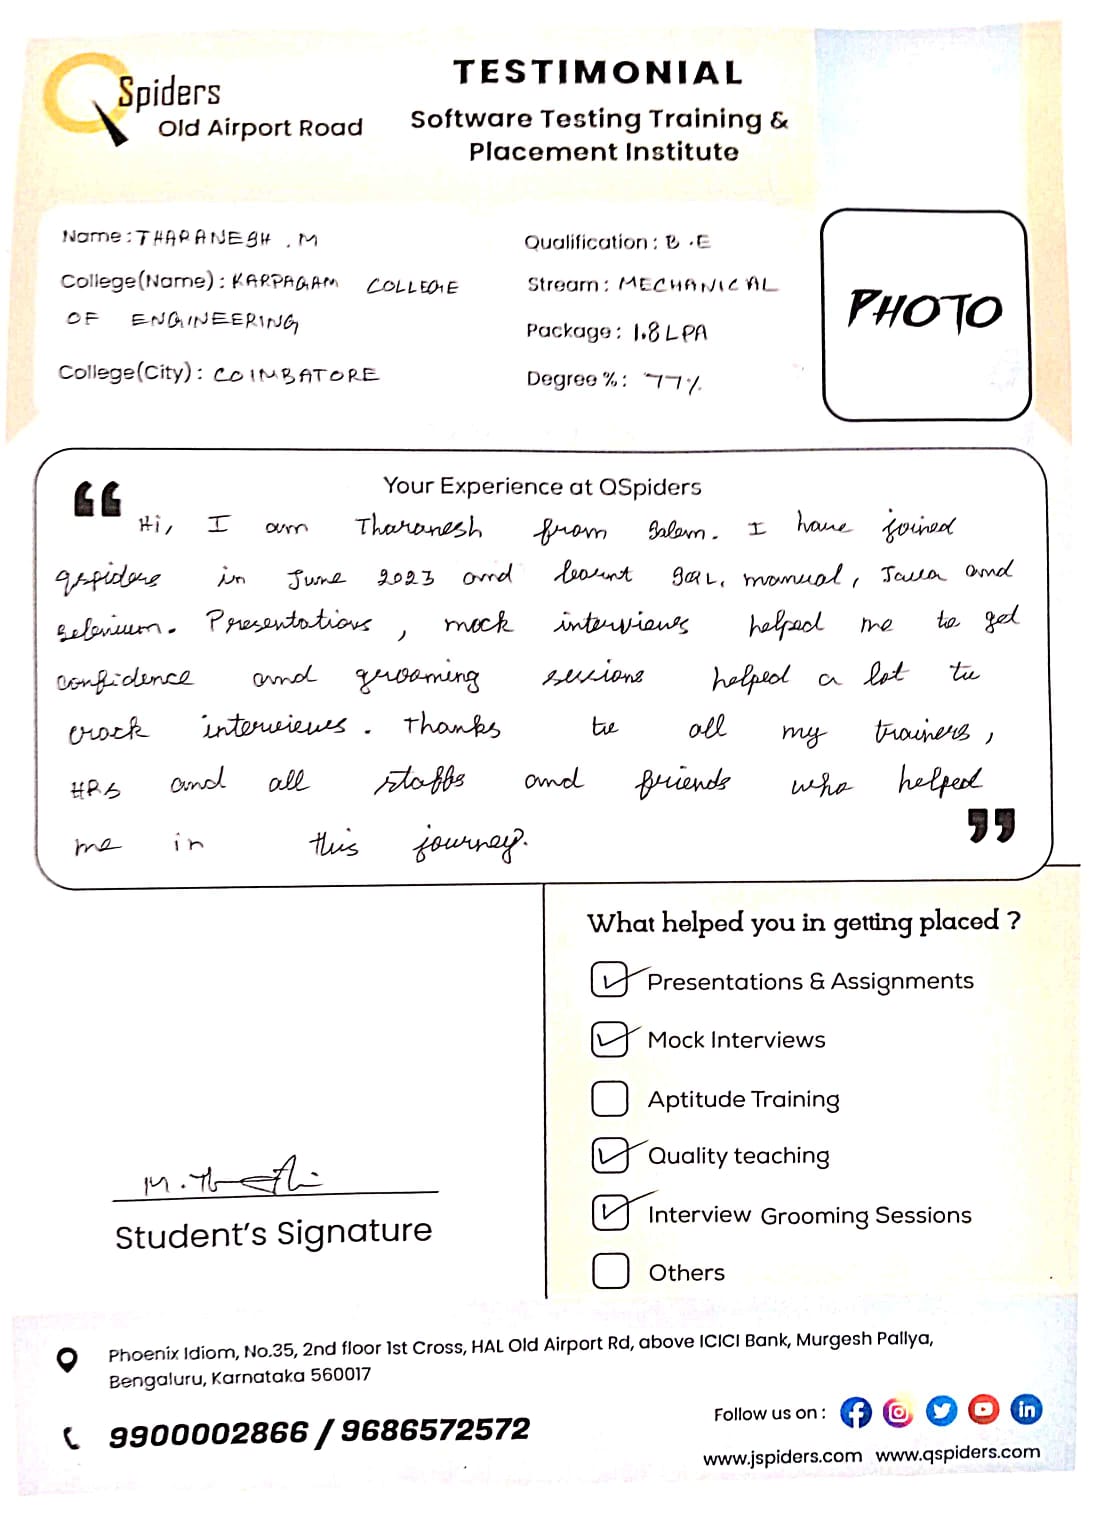 QSpiders
Old Airport Road
TESTIMONIAL
Software Testing Training &
Placement Institute
Name: THARANESH .M
College(Name): KARPAGAM COLLEGE
OF ENGINEERING
College(City): COIMBATORE
Qualification: B.E
Stream: MECHANICAL
Package: 1.8 LPA
Degree %: 77%
PHOTO
Your Experience at QSpiders
Hi, I am Tharanesh from Salem. I have joined
qspiders in June 2023 and learnt SQL, manual, Java and
Selenium. Presentations, mock interviews helped me to get
confidence and grooming sessions helped a lot to
crack interviews. Thanks to all my trainers,
HRS and all staffs and friends who helped
me in this journey.
What helped you in getting placed ?
Presentations & Assignments
Mock Interviews
Aptitude Training
Quality teaching
Interview Grooming Sessions
Others
Student's Signature
Phoenix Idiom, No.35, 2nd floor 1st Cross, HAL Old Airport Rd, above ICICI Bank, Murgesh Pallya,
Bengaluru, Karnataka 560017
9900002866 / 9686572572
Follow us on :
www.jspiders.com www.qspiders.com